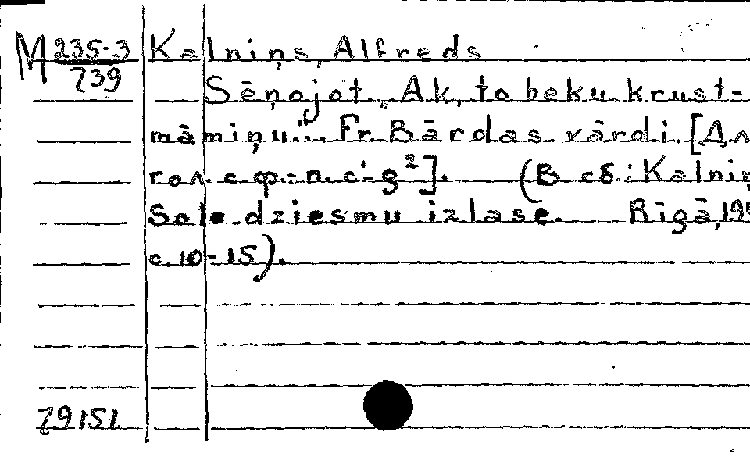 M 235-3 Kalniņs, Alfreds
739
Sēņojot „Ak, to beku krust-
māmiņu”. Fr. Bārdas vārdi. [Дл
гол. с ф.-п. c¹-g²]. (В сб.: Kalniņ
Solo dziesmu izlase. Rīgā, 195
с. 10-15).
79151